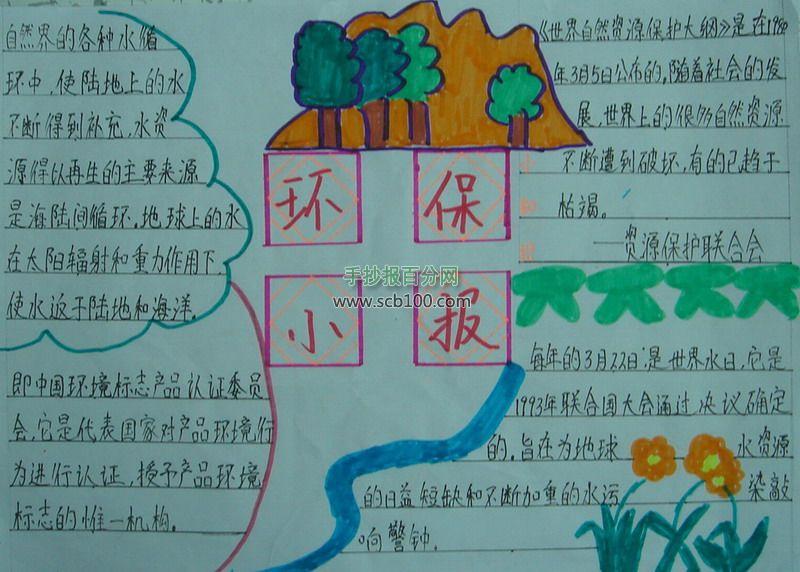 自然界的各种水循
环中，使陆地上的水
不断得到补充，水资
源得以再生的主要来源
是海陆间循环。地球上的水
在太阳辐射和重力作用下，
使水返于陆地和海洋。
即中国环境标志产品认证委员
会，它是代表国家对产品环境行
为进行认证，授予产品环境
标志的惟一机构。
环 保
小 报
手抄报百分网
www.scb100.com
《世界自然资源保护大纲》是在1980
年3月5日公布的，随着社会的发
展，世界上的很多自然资源
不断遭到破坏，有的已趋于
枯竭。
——资源保护联合会
每年的3月22日是世界水日，它是
1993年联合国大会通过决议确定
的，旨在为地球 水资源
的日益短缺和不断加重的水污 染敲
响警钟。